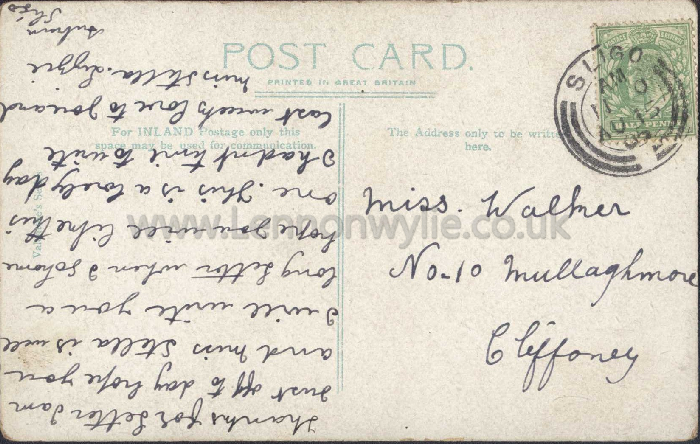 POST CARD.
PRINTED IN GREAT BRITAIN
For INLAND Postage only this
space may be used for communication.
The Address only to be written
here.
SLIGO
AM
AU 1
Miss. Walker
No-10 Mullaghmore
Cliffoney
Thanks for letter I am
Just off to day hope you
and miss Stella is well
I will write you a
long letter when I go home
hope you will like this
one. This is a lovely day
I hadn't time to write
last week love to
miss Stella. Lizzie
Auburn
Sligo
www.Lennonwylie.co.uk